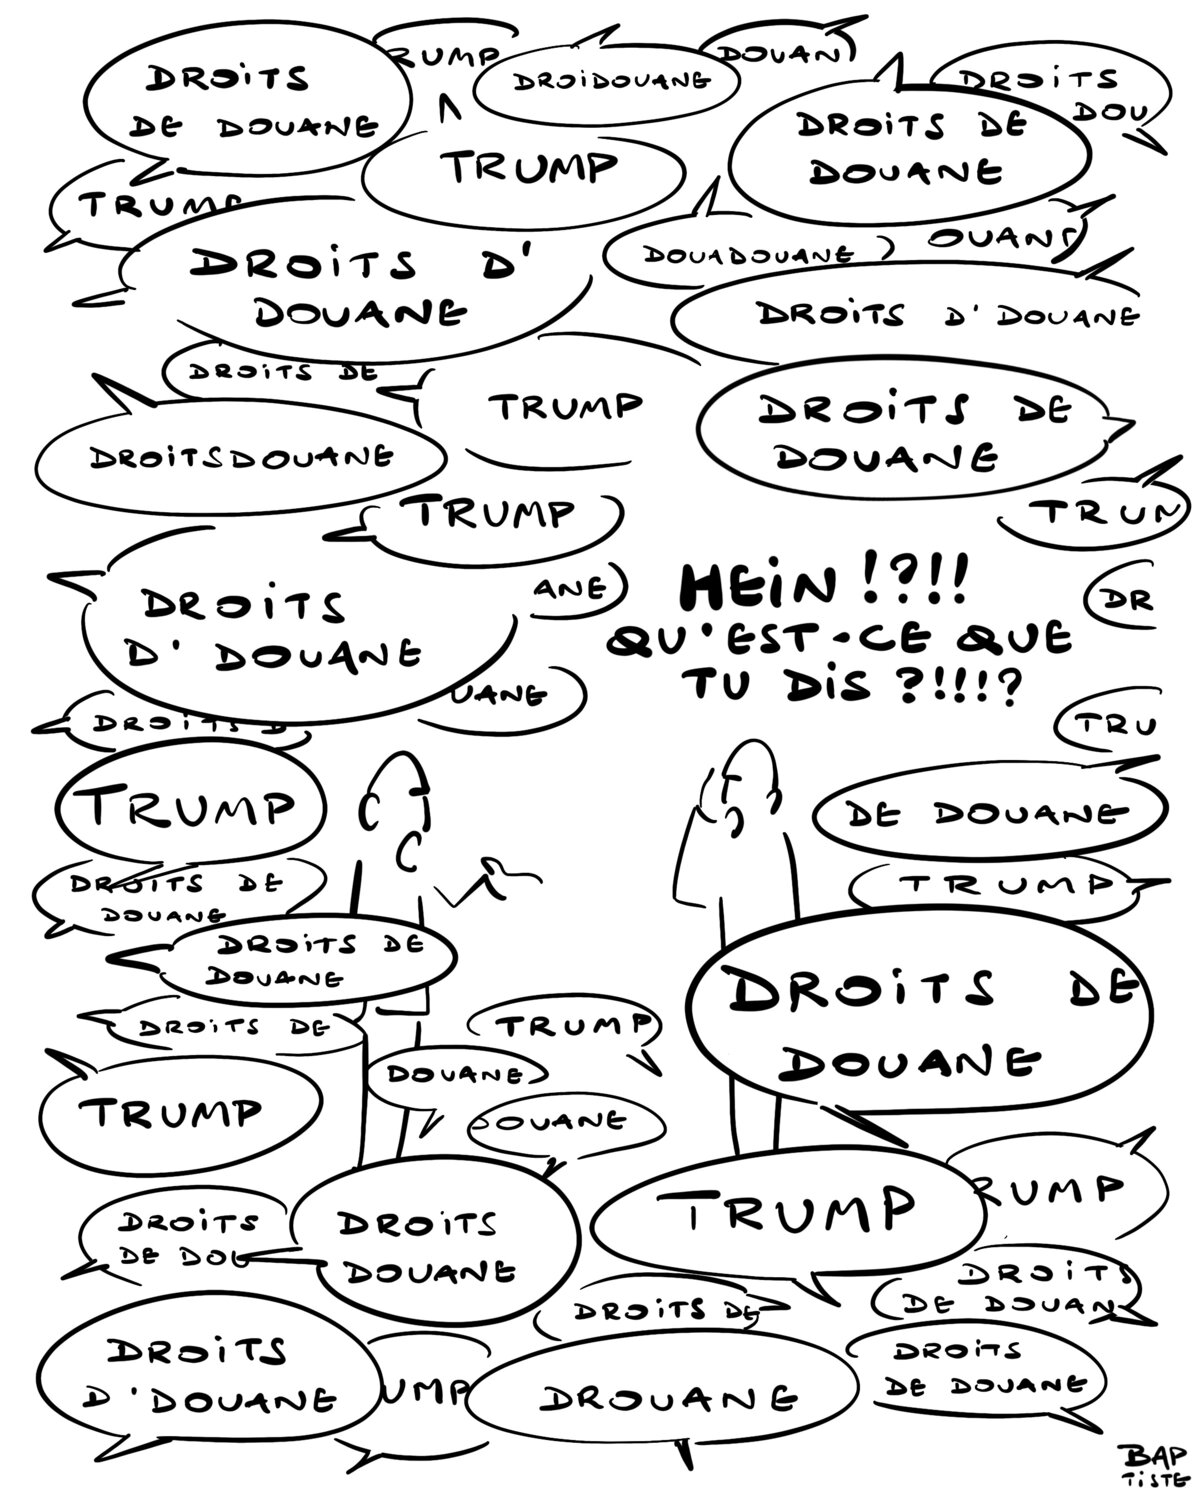 DROiTS
DE DOUANE
RUMP
DROiDOUANE
DOUAN
DROiTS DE
DOUANE
DROiTS
DOU
TRUMP
TRUMP
DROiTS D'
DOUANE
DOUADOUANE
OUANE
DROiTS D'DOUANE
DROiTS DE
TRUMP
DROiTS DE
DOUANE
DROiTSDOUANE
TRUMP
TRUM
DROiTS
D'DOUANE
ANE
HEiN !?!!
QU'EST-CE QUE
TU DiS ?!!!?
DR
UANE
DROiTS D
TRU
TRUMP
DE DOUANE
DROiTS DE
DOUANE
TRUMP
DROiTS DE
DOUANE
DROiTS DE
DOUANE
DROiTS DE
TRUMP
DOUANE
TRUMP
OUANE
TRUMP
RUMP
DROiTS
DE DOU
DROiTS
DOUANE
DROiTS
DE DOUAN
DROiTS DE
DROiTS
D'DOUANE
UMP
DROUANE
DROiTS
DE DOUANE
BAP
TiSTE